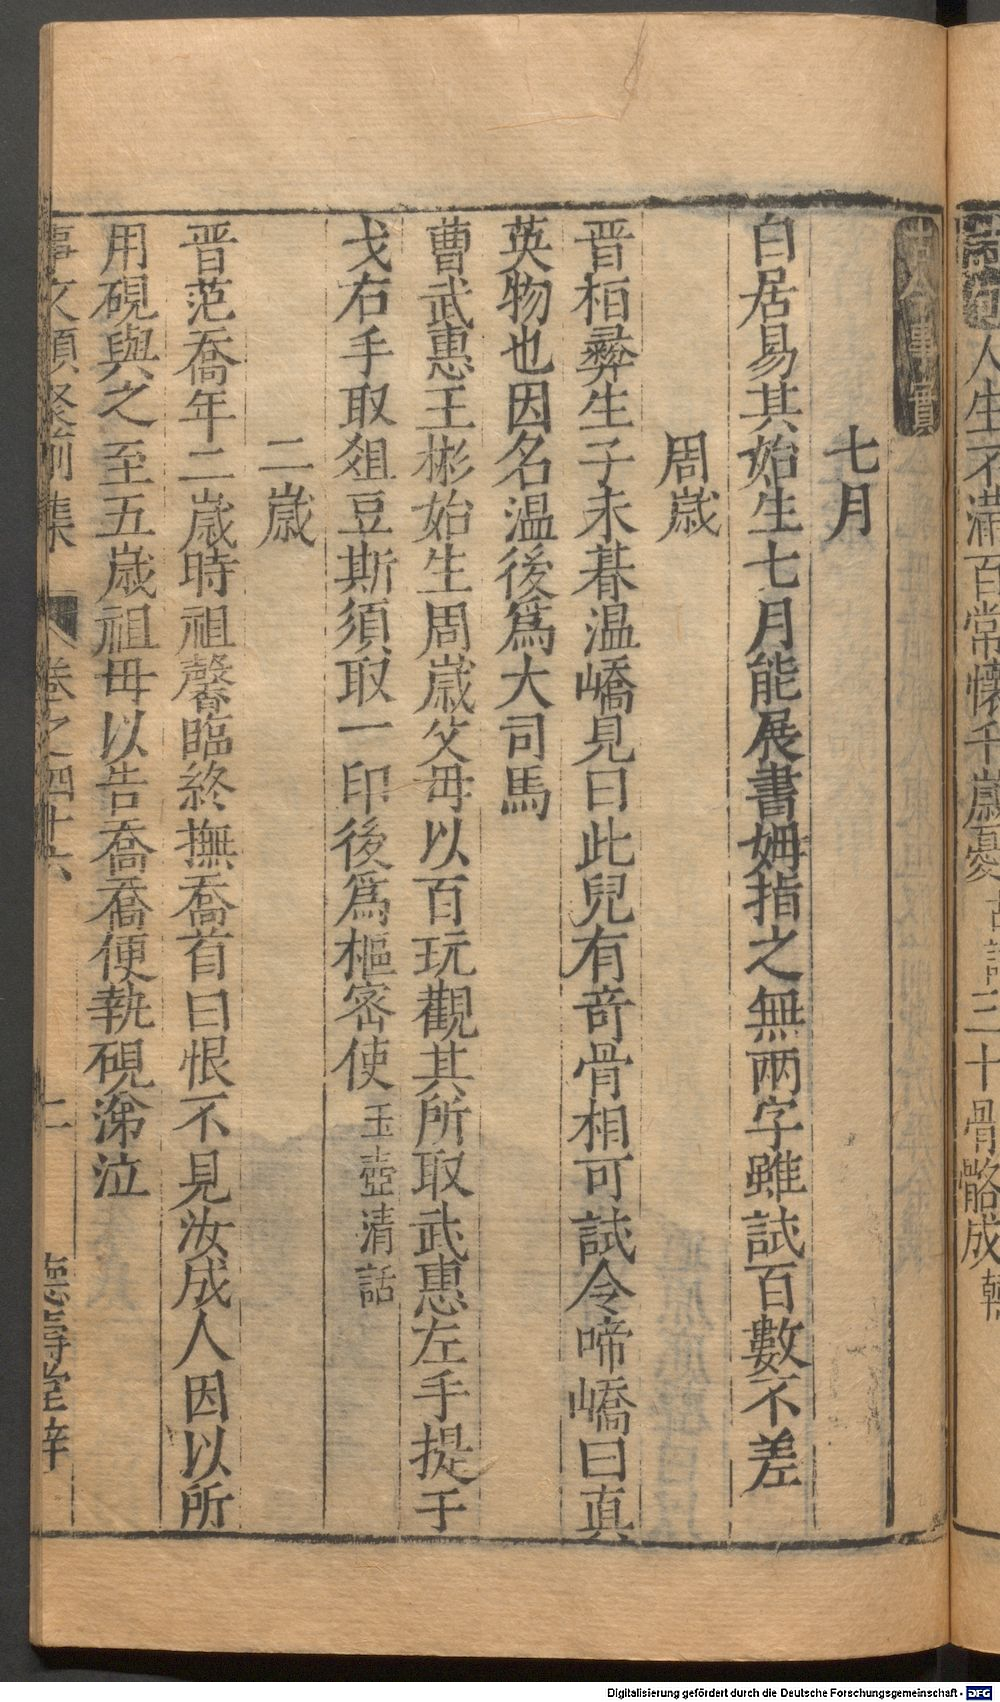 人生不滿百常懷千歲憂古詩三十骨骼成韓
古今事實
七月
白居易其始生七月能展書姆指之無兩字雖試百數不差
周歲
晋桓彝生子未朞温嶠見曰此兒有竒骨相可試令啼嶠曰真
英物也因名温後爲大司馬
曹武惠王彬始生周歲父毋以百玩觀其所取武惠左手提干
戈右手取俎豆斯須取一印後爲樞宻使玉壺清話
二歲
晋范喬年二歲時祖馨臨終撫喬首曰恨不見汝成人因以所
用硯與之至五歲祖毋以告喬喬便執硯涕泣
事文類聚前集 卷之四十六 二 德壽堂梓
Digitalisierung gefördert durch die Deutsche Forschungsgemeinschaft - DFG